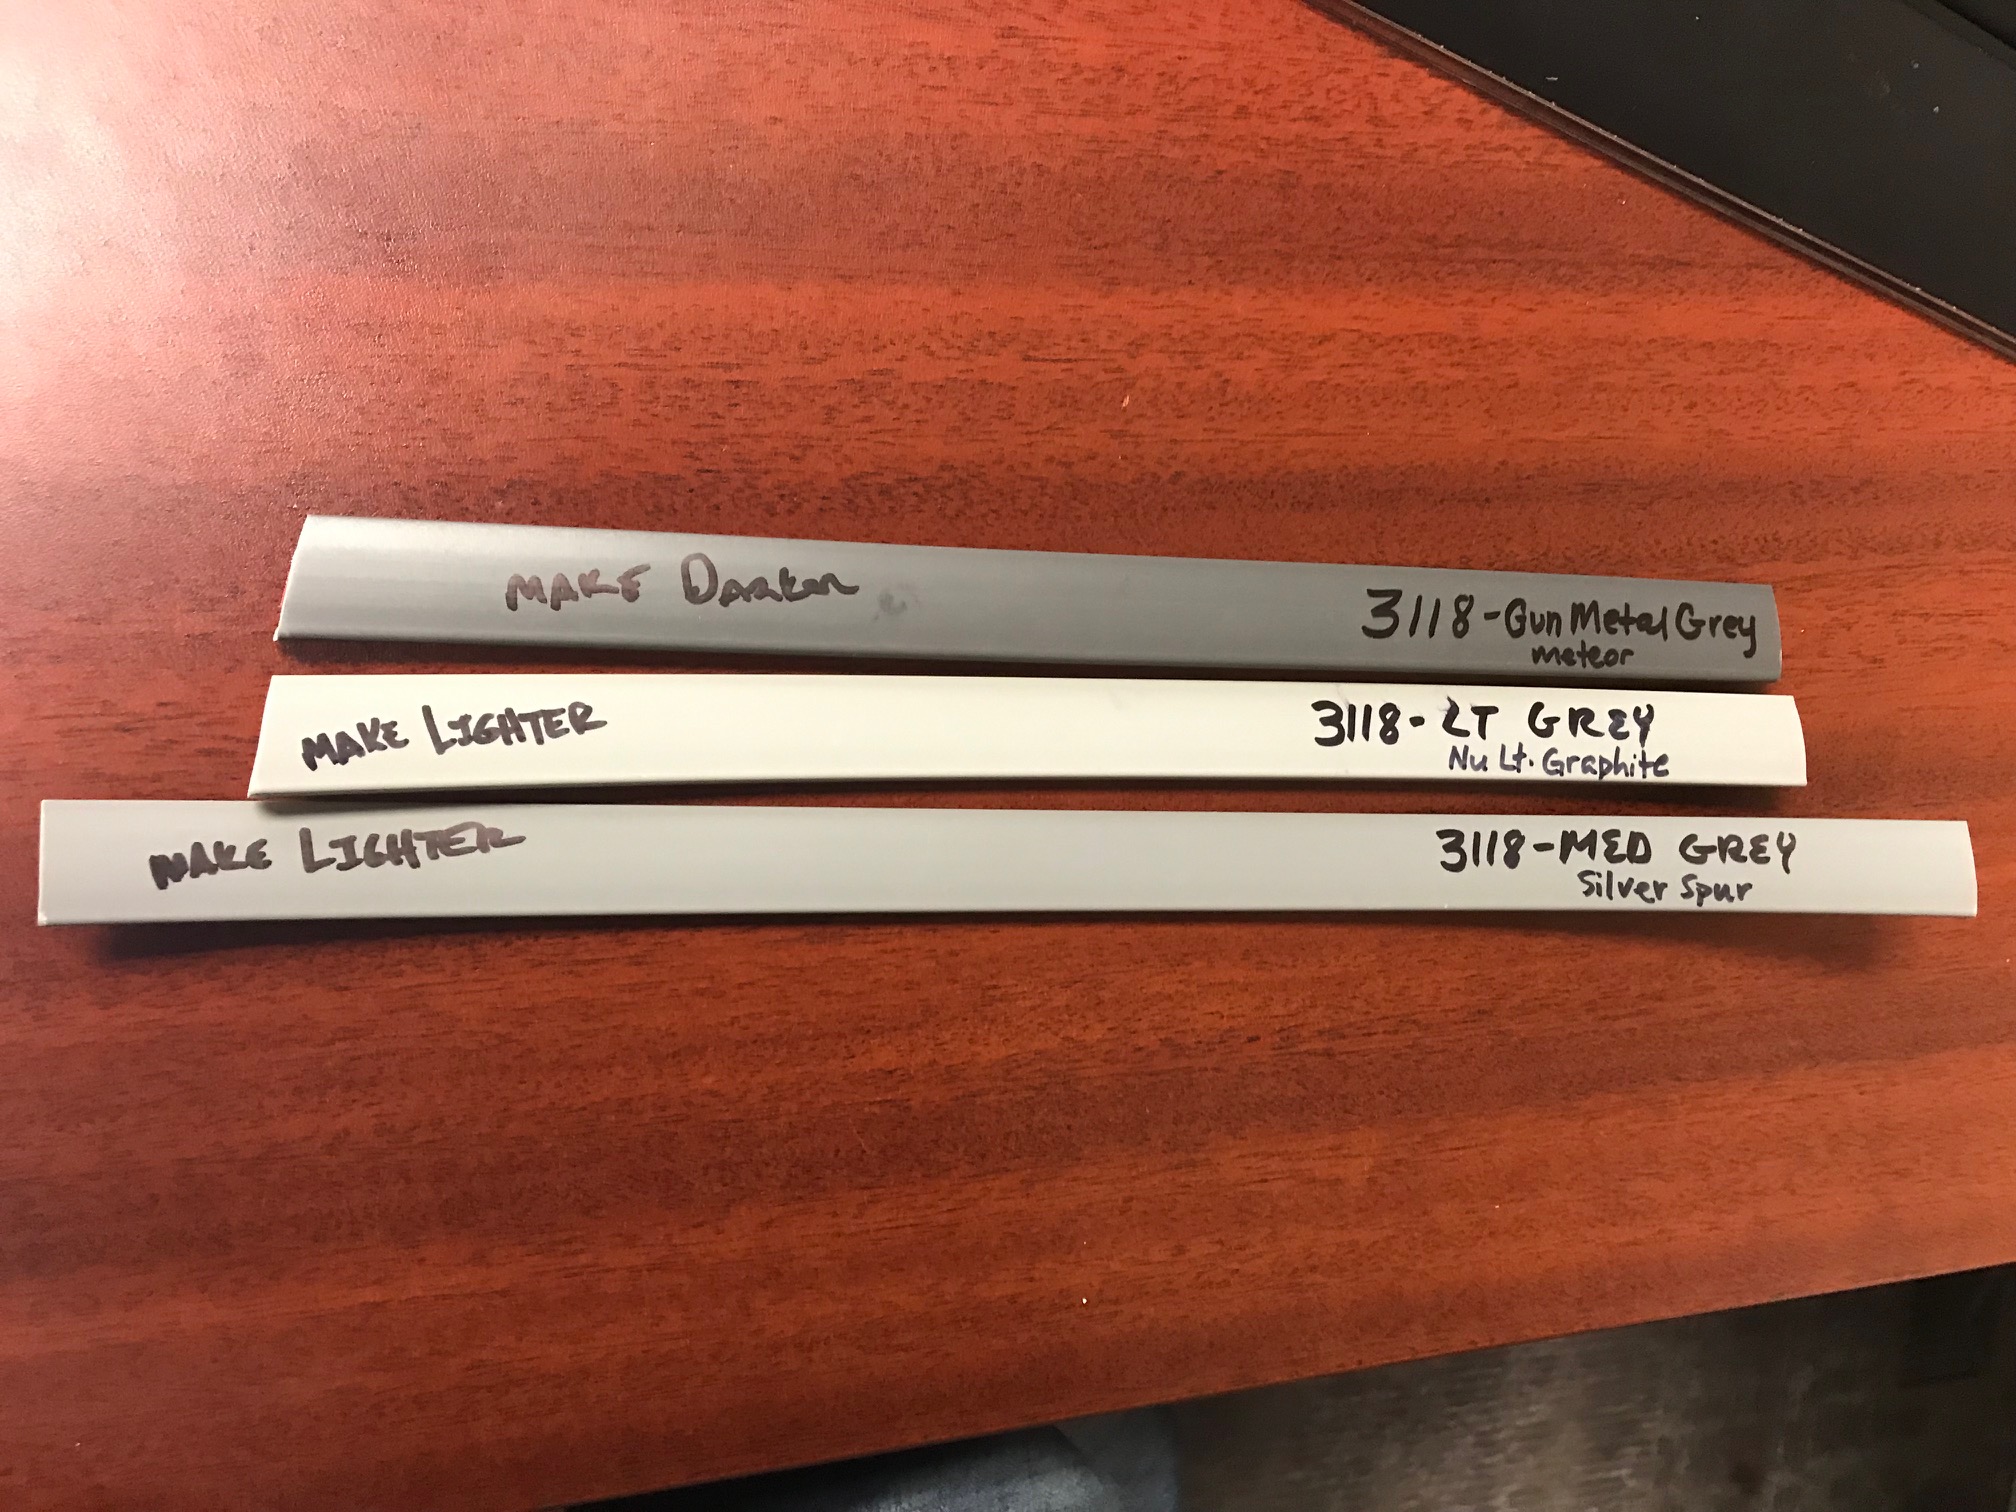 MAKE LIGHTER
3118-MED GREY
Silver Spur
MAKE LIGHTER
3118-LT GREY
Nu Lt. Graphite
MAKE Darker
3118-GunMetal Grey
meteor